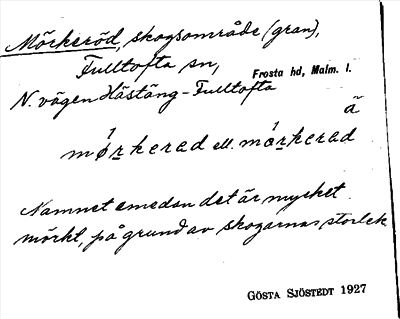 Mörkeröd, skogsområde (gran),
Fulltofta sn, Frosta hd, Malm. l.
N. vägen Hästäng - Fulltofta
ä
mǿrkerad ell. mǿrkerad
Namnet emedan det är mycket
mörkt, på grund av skogarnas storlek
GÖSTA SJÖSTEDT 1927